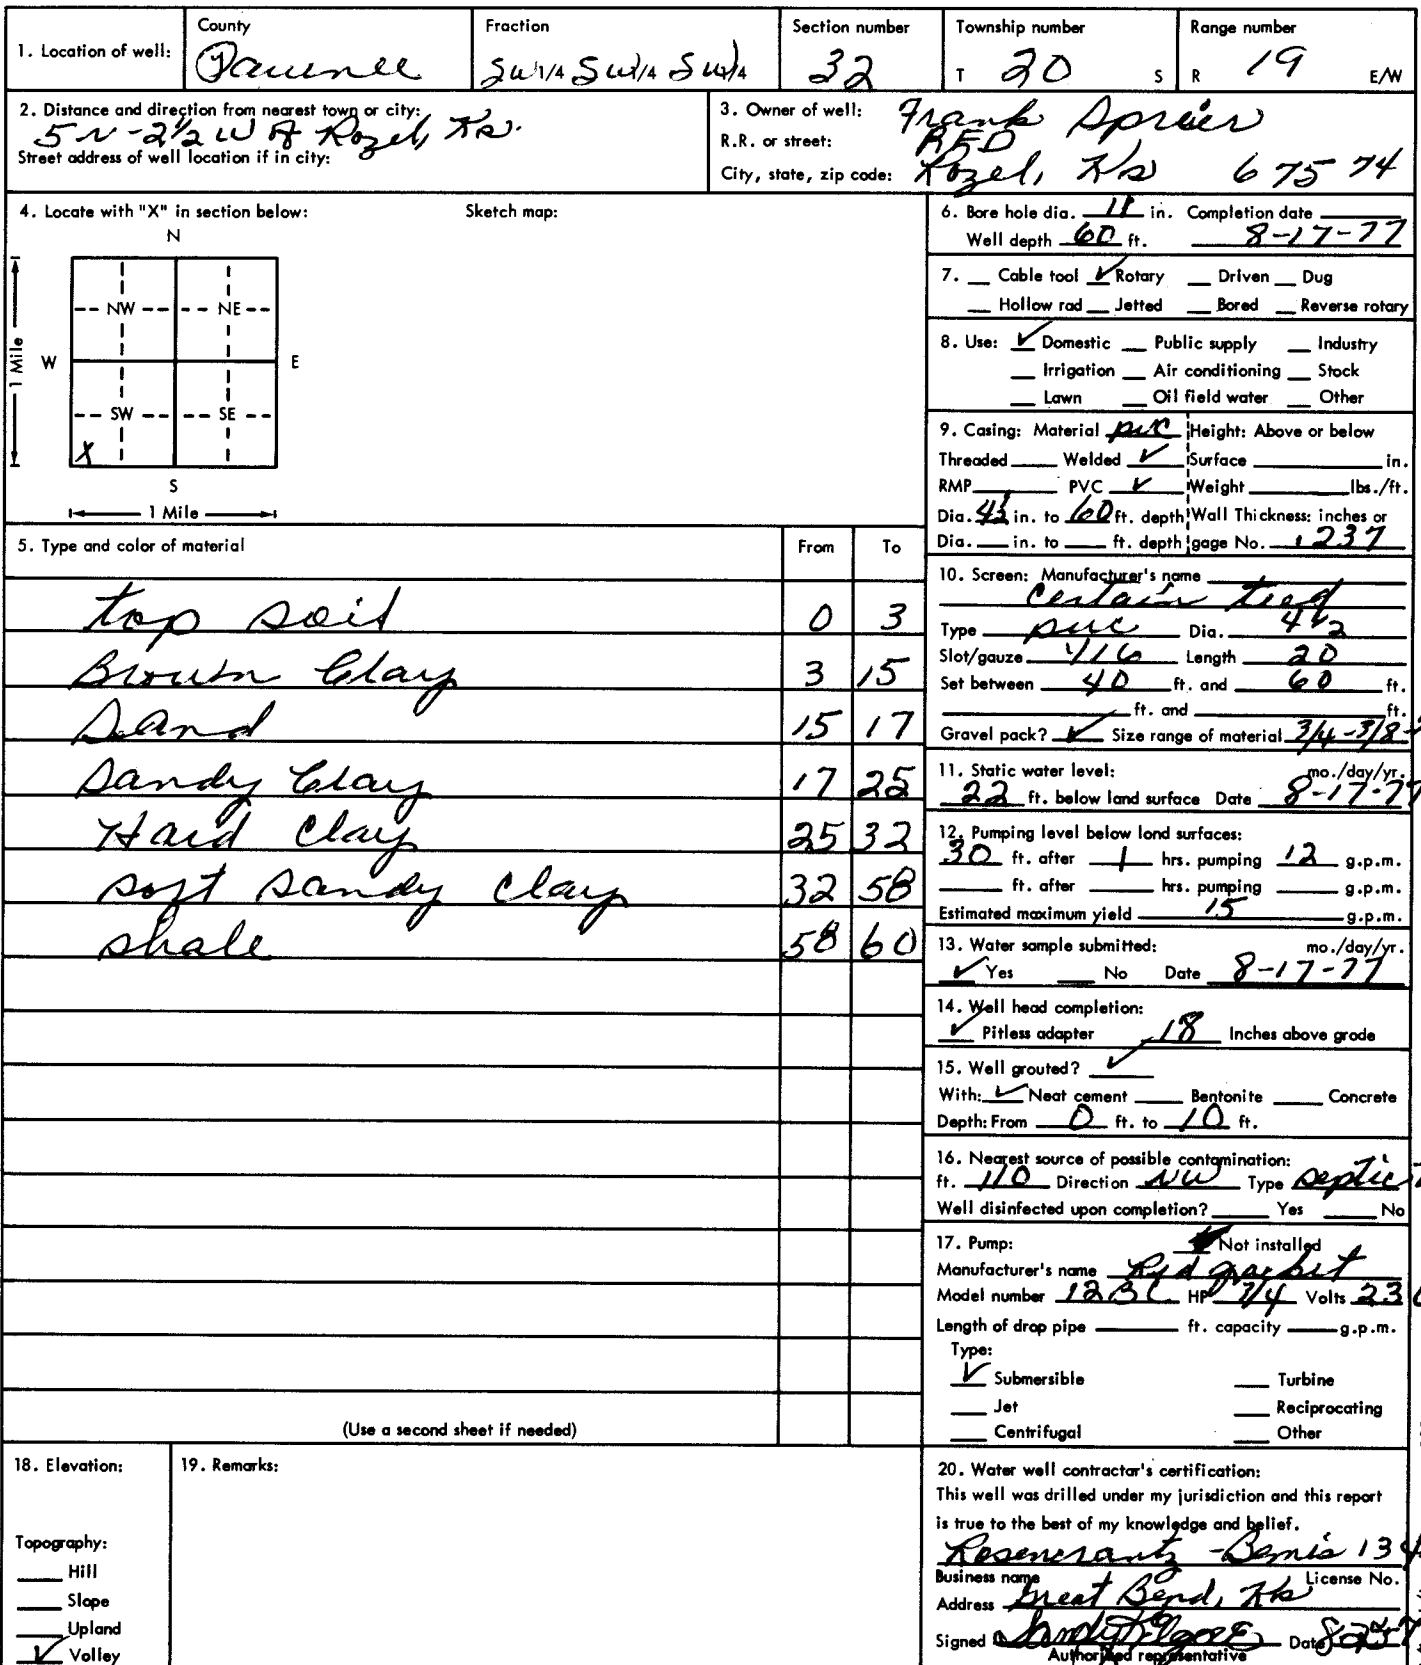 1. Location of well: County Pawnee Fraction SW1/4 SW1/4 SW1/4 Section number 32 Township number T 20 S Range number R 19 E/W
2. Distance and direction from nearest town or city: 5 N - 2 1/2 W of Rozel, Ks.
Street address of well location if in city:
3. Owner of well: Frank Spreier
R.R. or street: RFD
City, state, zip code: Rozel, Ks 67574
4. Locate with "X" in section below: Sketch map:
N
NW NE
W E
1 Mile
SW SE
X
S
1 Mile
5. Type and color of material From To
top soil 0 3
Brown Clay 3 15
Sand 15 17
Sandy Clay 17 25
Hard Clay 25 32
soft sandy clay 32 58
shale 58 60
(Use a second sheet if needed)
6. Bore hole dia. 11 in. Completion date
Well depth 60 ft. 8-17-77
7. Cable tool ✓ Rotary Driven Dug
Hollow rad Jetted Bored Reverse rotary
8. Use: ✓ Domestic Public supply Industry
Irrigation Air conditioning Stock
Lawn Oil field water Other
9. Casing: Material PVC Height: Above or below
Threaded Welded ✓ Surface in.
RMP PVC ✓ Weight lbs./ft.
Dia. 4½ in. to 60 ft. depth Wall Thickness: inches or
Dia. in. to ft. depth gage No. .237
10. Screen: Manufacturer's name
Certain teed
Type PVC Dia. 4 1/2
Slot/gauze 1/16 Length 20
Set between 40 ft. and 60 ft.
ft. and ft.
Gravel pack? ✓ Size range of material 3/4-3/8-
11. Static water level: mo./day/yr.
22 ft. below land surface Date 8-17-77
12. Pumping level below land surfaces:
30 ft. after 1 hrs. pumping 12 g.p.m.
ft. after hrs. pumping g.p.m.
Estimated maximum yield 15 g.p.m.
13. Water sample submitted: mo./day/yr.
✓ Yes No Date 8-17-77
14. Well head completion:
✓ Pitless adapter 18 Inches above grade
15. Well grouted? ✓
With: ✓ Neat cement Bentonite Concrete
Depth: From 0 ft. to 10 ft.
16. Nearest source of possible contamination:
ft. 110 Direction NW Type septic
Well disinfected upon completion? Yes No
17. Pump: Not installed
Manufacturer's name Red Jacket
Model number 12BC HP 3/4 Volts 230
Length of drop pipe ft. capacity g.p.m.
Type:
✓ Submersible Turbine
Jet Reciprocating
Centrifugal Other
18. Elevation:
Topography:
Hill
Slope
Upland
✓ Valley
19. Remarks:
20. Water well contractor's certification:
This well was drilled under my jurisdiction and this report
is true to the best of my knowledge and belief.
Rosencrantz - Bemis 134
Business name License No.
Address Great Bend, Ks
Signed Date
Authorized representative